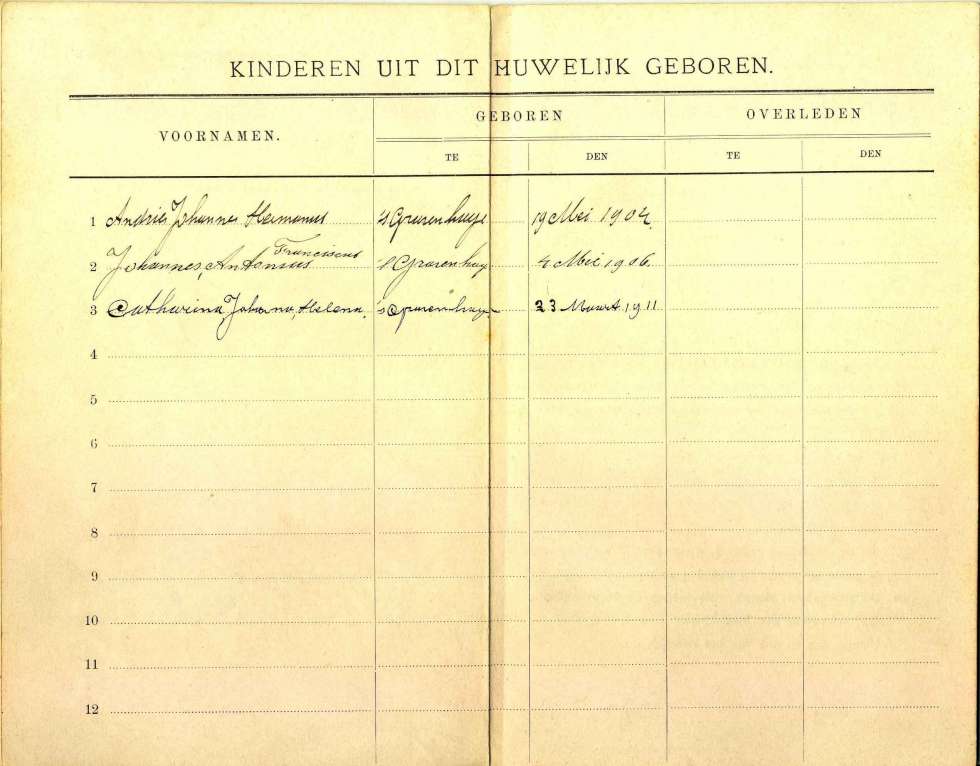 KINDEREN UIT DIT HUWELIJK GEBOREN.
VOORNAMEN. GEBOREN OVERLEDEN
TE DEN TE DEN
1 Andries Johannes Hermanus 's Gravenhage 19 Mei 1904.
Franciscus
2 Johannes, Antonius 's Gravenhage 4 Mei 1906.
3 Catharina, Johanna, Helena. 's Gravenhage. 23 Maart 1911
4
5
6
7
8
9
10
11
12